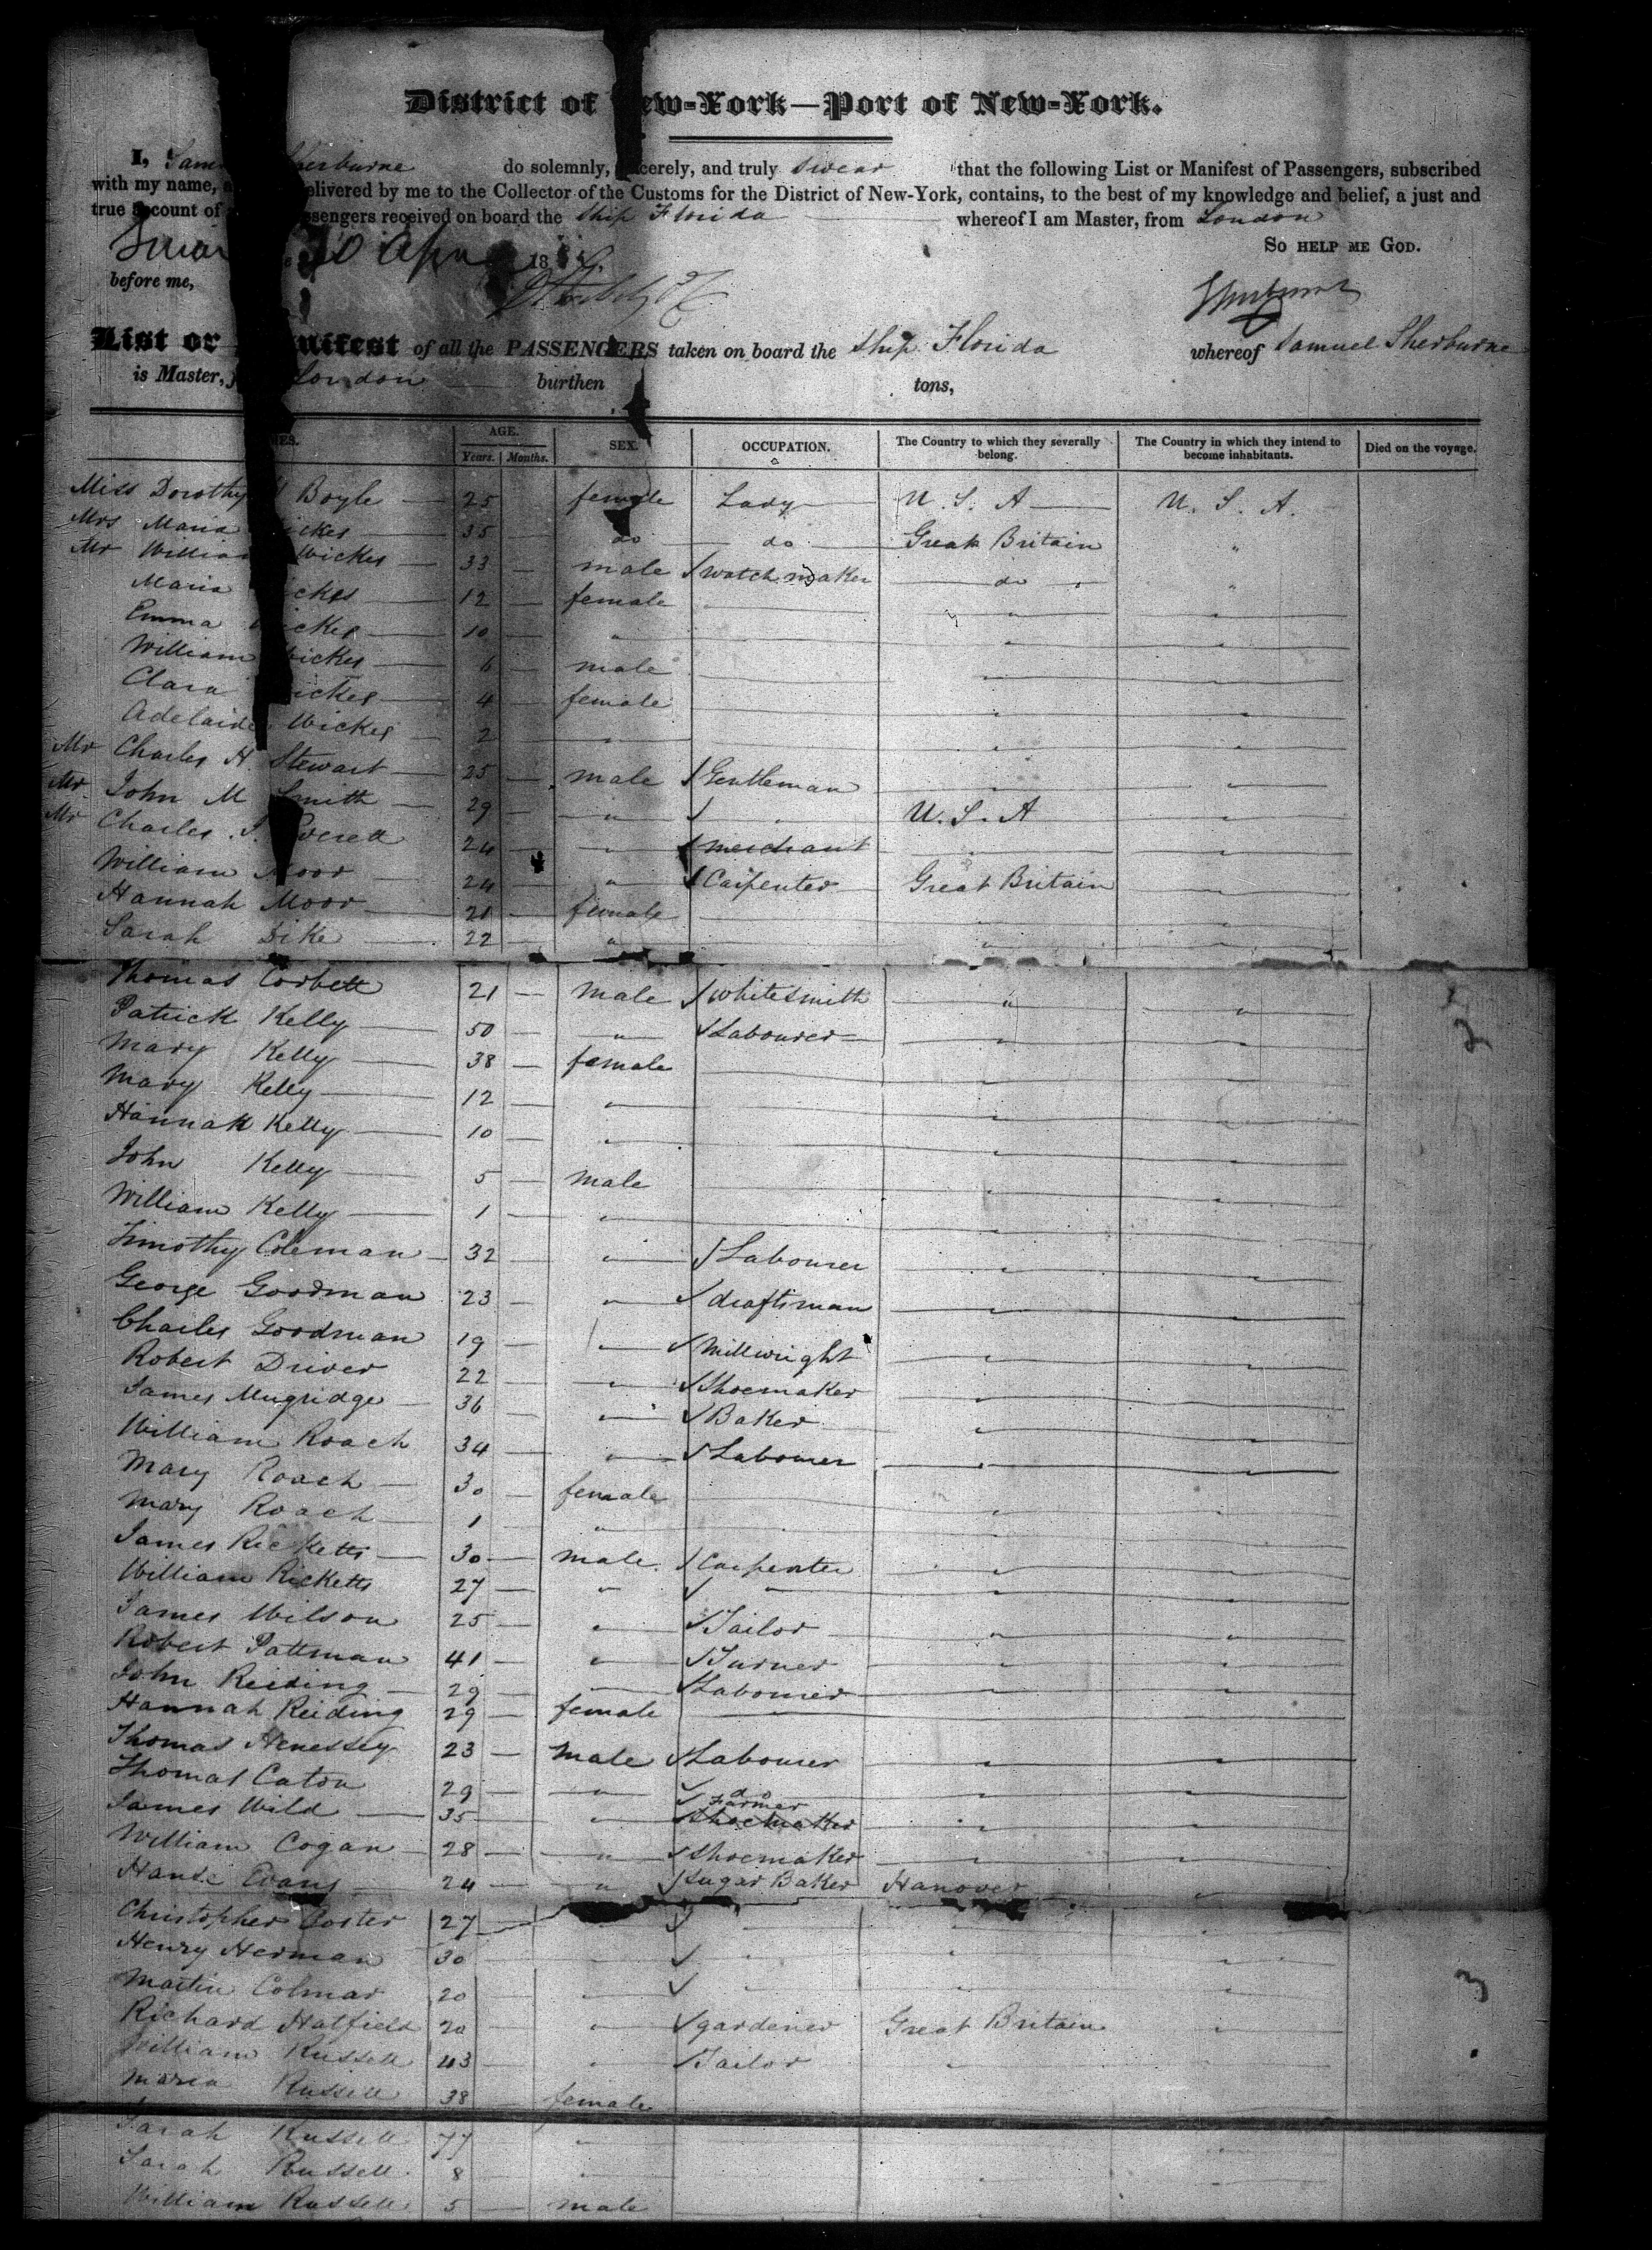 District of New-York—Port of New-York.
I, Sam Sherburne do solemnly, sincerely, and truly swear that the following List or Manifest of Passengers, subscribed
with my name, delivered by me to the Collector of the Customs for the District of New-York, contains, to the best of my knowledge and belief, a just and
true account of passengers received on board the Ship Florida whereof I am Master, from London
So help me God.
30 18
before me,
List or Manifest of all the PASSENGERS taken on board the Ship Florida whereof Samuel Sherburne
is Master, London burthen tons,
NAMES. AGE. Years. Months. SEX. OCCUPATION. The Country to which they severally belong. The Country in which they intend to become inhabitants. Died on the voyage.
Miss Dorothy Boyle 25 female Lady U. S. A U. S. A.
Mrs Maria Wickes 35 do do Great Britain "
Mr William Wickes 33 male watch maker do "
Maria Wickes 12 female " "
Emma Wickes 10 " " "
William Wickes 6 male " "
Clara Wickes 4 female " "
Adelaide Wickes 2 " " "
Mr Charles H. Stewart 25 male Gentleman " "
Mr John M Smith 29 " " U. S. A "
Mr Charles 24 " merchant " "
William Moor 24 " Carpenter Great Britain "
Hannah Moor 21 female " "
Sarah Dike 22 " " "
Thomas Corbett 21 male whitesmith " "
Patrick Kelly 50 " Labourer " "
Mary Kelly 38 female " "
Mary Kelly 12 " " "
Hannah Kelly 10 " " "
John Kelly 5 male " "
William Kelly 1 " " "
Timothy Coleman 32 " Labourer " "
George Goodman 23 " draftsman " "
Charles Goodman 19 " Millwright " "
Robert Driver 22 " Shoemaker " "
James Mugridge 36 " Baker " "
William Roach 34 " Labourer " "
Mary Roach 30 female " "
Mary Roach 1 " " "
James Ricketts 30 male Carpenter " "
William Ricketts 27 " " " "
James Wilson 25 " Tailor " "
Robert Pattman 41 " Turner " "
John Reiding 29 " Labourer " "
Hannah Reiding 29 female " "
Thomas Henessey 23 male Labourer " "
Thomas Caton 29 " do " "
James Wild 35 " Farmer Shoemaker " "
William Cogan 28 " Shoemaker " "
Hanse Evans 24 " Sugar Baker Hanover "
Christopher Coster 27 " " "
Henry Herman 30 " " " "
Martin Colmar 20 " " " "
Richard Hatfield 20 " gardener Great Britain "
William Russell 43 " Tailor " "
Maria Russell 38 female
Sarah Russell 77 " " "
Sarah Russell 8 " " "
William Russell 5 male " "